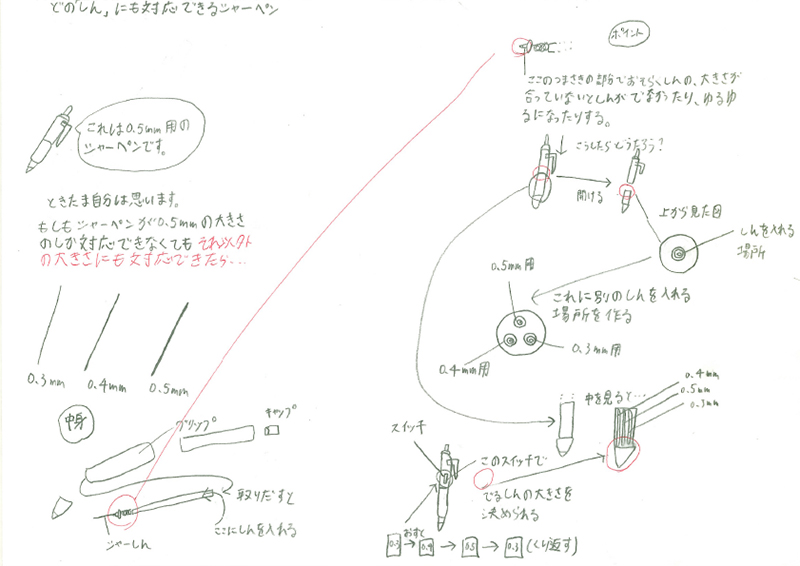 どの「しん」にも対応できるシャーペン
これは0.5mm用の
シャーペンです。
ときたま自分は思います。
もしもシャーペンが0.5mmの大きさ
のしか対応できなくてもそれ以外
の大きさにも対応できたら...
0.3mm
0.4mm
0.5mm
中身
グリップ
キャップ
取りだすと
ここにしんを入れる
シャーしん
ポイント
ここのつまさきの部分でおそらくしんの、大きさが
合っていないとしんがでなかったり、ゆるゆ
るになったりする。
こうしたらどうだろう?
開ける
上から見た図
しんを入れる
場所
これに別のしんを入れる
場所を作る
0.5mm用
0.4mm用
0.3mm用
中を見ると...
0.4mm
0.5mm
0.3mm
スイッチ
このスイッチで
でるしんの大きさを
決められる
おすと
0.3
0.4
0.5
0.3
(くり返す)